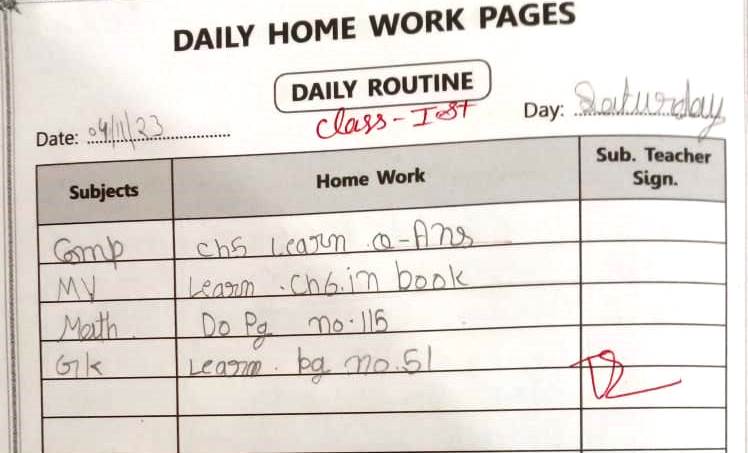 DAILY HOME WORK PAGES
DAILY ROUTINE
Class - Ist
Date: 04/11/23 Day: Saturday
Subjects Home Work Sub. Teacher Sign.
Comp ch5 Learn Q-Ans
MV Learn . Ch6. in book
Math Do Pg no. 115
GK Learn. pg no. 51